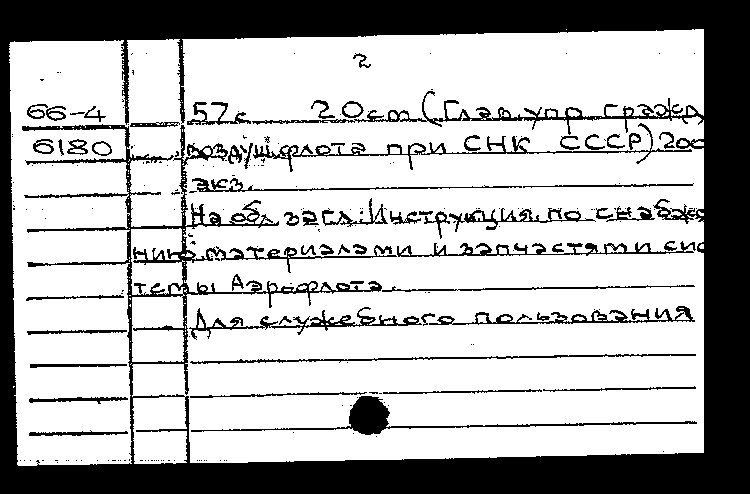 2
66-4 57с 20cm (Глав. упр. гражд.
6180 воздуш. флота при СНК СССР) 200
экз.
На обл. загл: Инструкция по снабже
нию материалами и запчастями сис
темы Аэрофлота.
Для служебного пользования